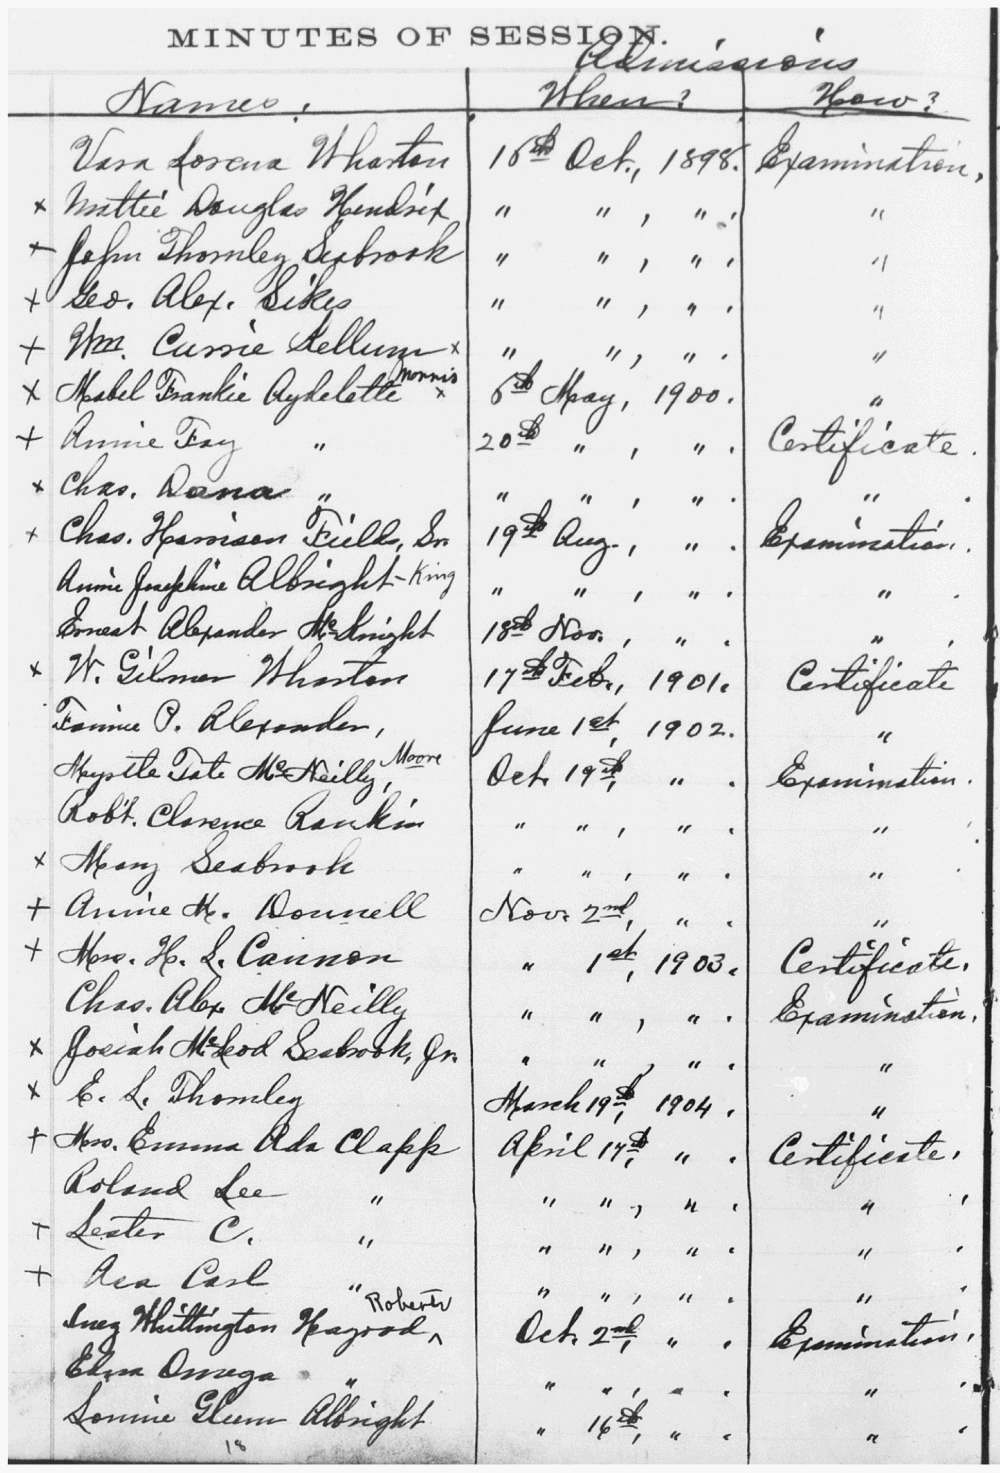 MINUTES OF SESSION.
Admissions
Names. When? How?
Vara Lorena Wharton 16th Oct., 1898. Examination,
x Mattie Douglas Hendrix " " , " . "
+ John Thornley Seabrook " " , " . "
+ Geo. Alex. Sikes " " , " . "
+ Wm. Currie Kellum x " " , " . "
x Mabel Frankie Aydelette Morris x 6th May, 1900. "
+ Annie Fay " 20th " , " . Certificate.
x Chas. Dana " " " , " . " .
+ Chas. Harrison Fields, Sr. 19th Aug., " . Examination.
Annie Josephine Albright - King " " , " . " .
Ernest Alexander McKnight 18th Nov., " . " .
x W. Gilmer Wharton 17th Feb., 1901. Certificate
Fannie P. Alexander, June 1st, 1902. "
Myrtle Tate McNeilly, Moore Oct. 19th, " . Examination.
Robt. Clarence Rankin " " , " . " .
x Mary Seabrook " " , " . " .
+ Annie M. Donnell Nov. 2nd, " . "
+ Mrs. H. L. Cannon " 1st, 1903. Certificate.
Chas. Alex. McNeilly " " , " . Examination.
x Josiah McLeod Seabrook, Jr. " " , " . "
x E. L. Thornley March 19th, 1904. "
+ Mrs. Emma Ada Clapp April 17th, " . Certificate.
Roland Lee " " " , " . " .
+ Lester C. " " " , " . " .
+ Asa Carl " " " , " . " .
Inez Whittington Hagood, ^ Roberts Oct. 2nd, " . Examination.
Edna Omega " " " , " . " .
Lonnie Glenn Albright " 16th, " . " .
18